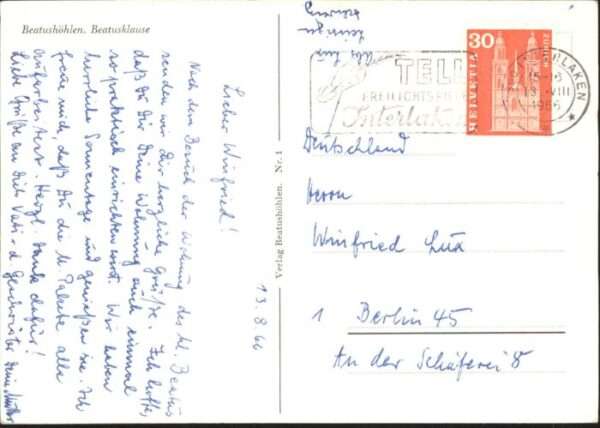 Beatushöhlen. Beatusklause
13.8.66
Lieber Winfried!
Nach dem Besuch der Wohnung des hl. Beatus
senden wir Dir herzliche Grüße. Ich hoffe,
daß Du Dir Deine Wohnung auch einmal
so praktisch einrichten wirst. Wir haben
herrliche Sonnentage und genießen sie. Ich
freue mich, daß Du die M. Pakete alle
Herzl. Dank dafür!
Liebe Grüße an Dich Vati u Geschwister Deine Mutter
Verlag Beatushöhlen. Nr. 1
Abs
TELL
FREILICHTSPIELE
Interlaken
HELVETIA
30
ZÜRICH
INTERLAKEN
13.VIII
1966
Deutschland
Herrn
Winfried Lux
1 Berlin 45
An der Schäferei 8